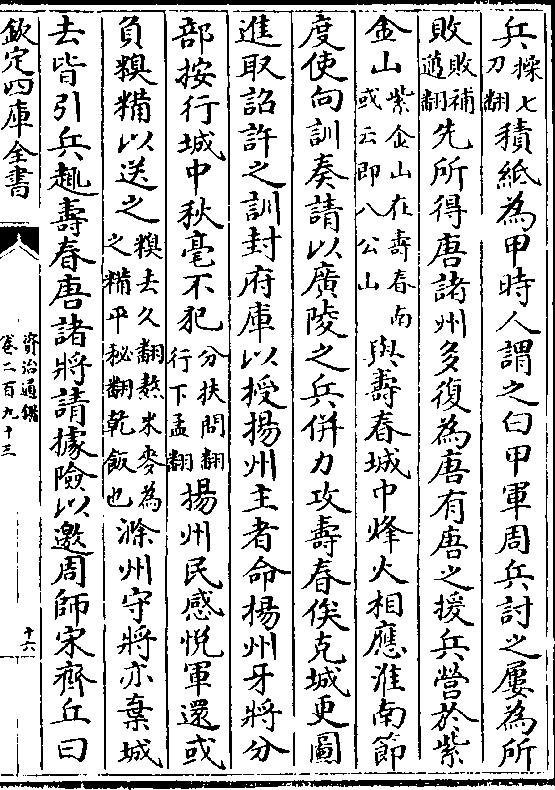 兵操七刀翻積紙為甲時人謂之白甲軍周兵討之屢為所
敗敗補邁翻先所得唐諸州多復為唐有唐之援兵營於紫
金山紫金山在壽春南或云即八公山與壽春城中烽火相應淮南節
度使向訓奏請以廣陵之兵併力攻壽春俟克城更圖
進取詔許之訓封府庫以授揚州主者命揚州牙將分
部按行城中秋毫不犯分扶問翻行下孟翻揚州民感悅軍還或
負糗糒以送之糗去久翻熬米麥為之糒平秘翻乾飯也滁州守將亦棄城
去皆引兵趣壽春唐諸將請據險以邀周師宋齊丘曰
欽定四庫全書
資治通鑑
卷二百九十三
十六